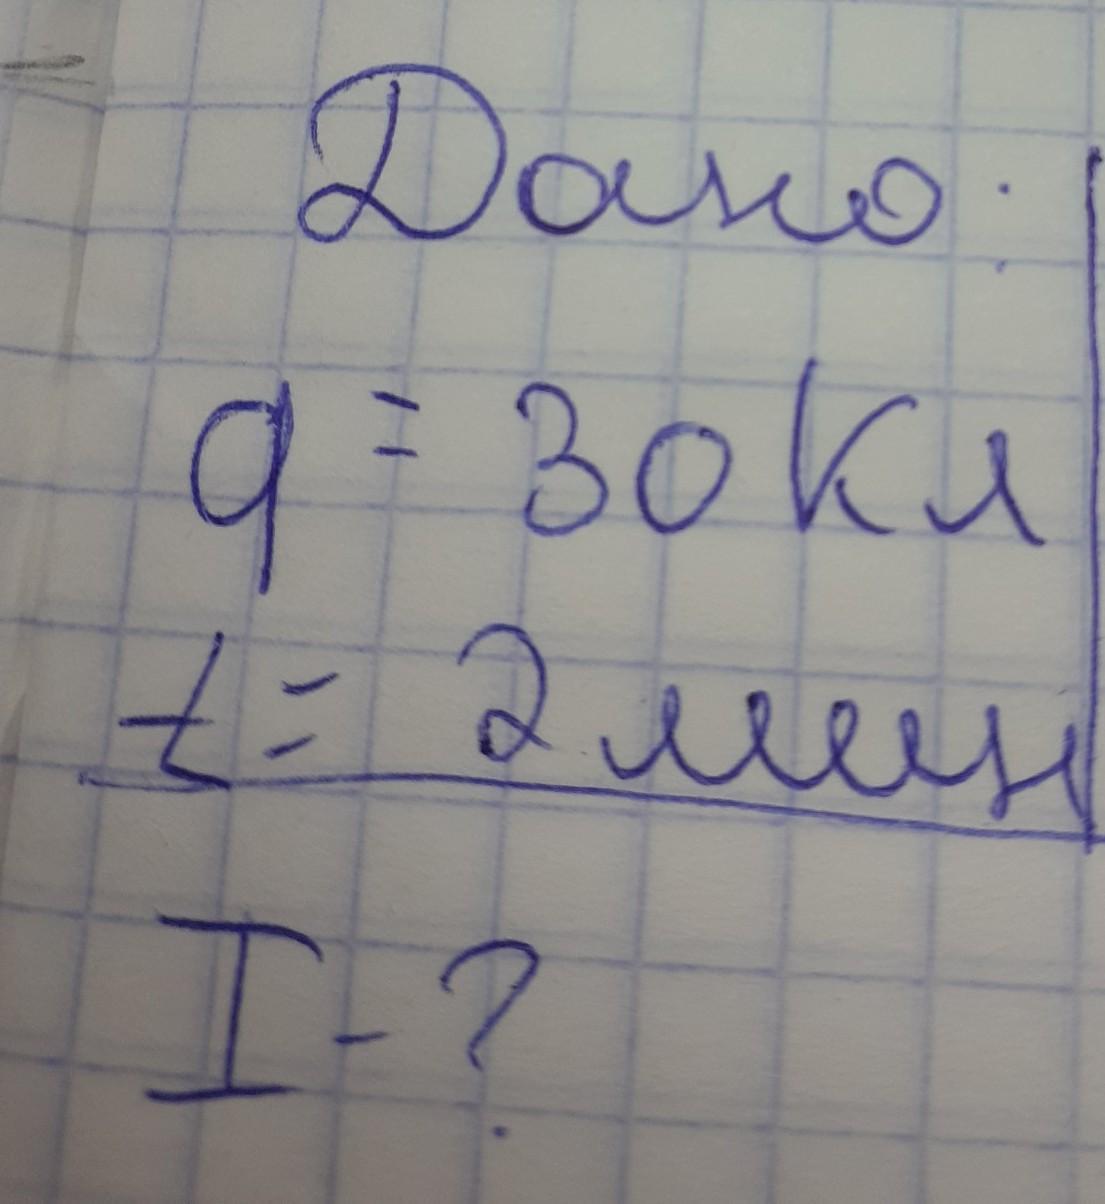 Дано:
q = 30 Кл
t = 2 мин
I - ?